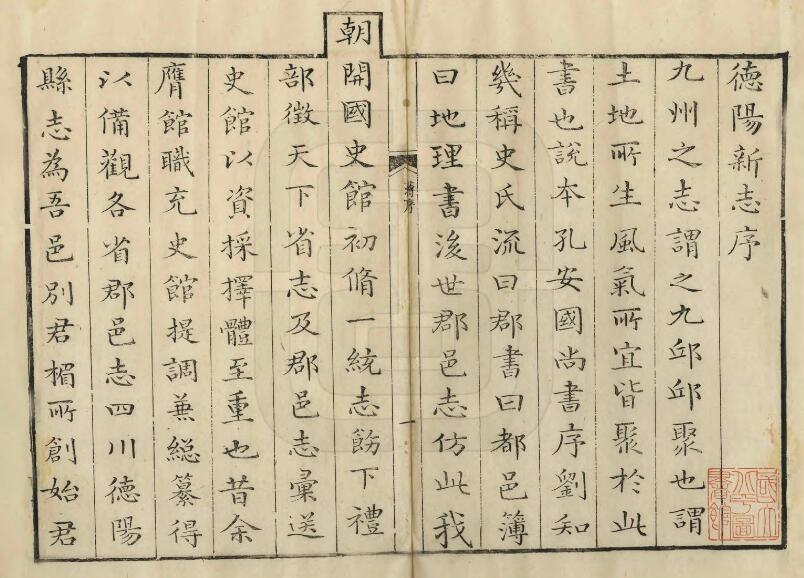 德陽新志序
九州之志謂之九邱邱聚也謂
土地所生風氣所宜皆聚於此
書也說本孔安國尚書序劉知
幾稱史氏流曰郡書曰都邑簿
曰地理書後世郡邑志仿此我
蔣序
一
朝開國史館初脩一統志飭下禮
部徵天下省志及郡邑志彙送
史館以資採擇體至重也昔余
膺館職充史館提調兼總纂得
以備觀各省郡邑志四川德陽
縣志為吾邑別君楣所創始君